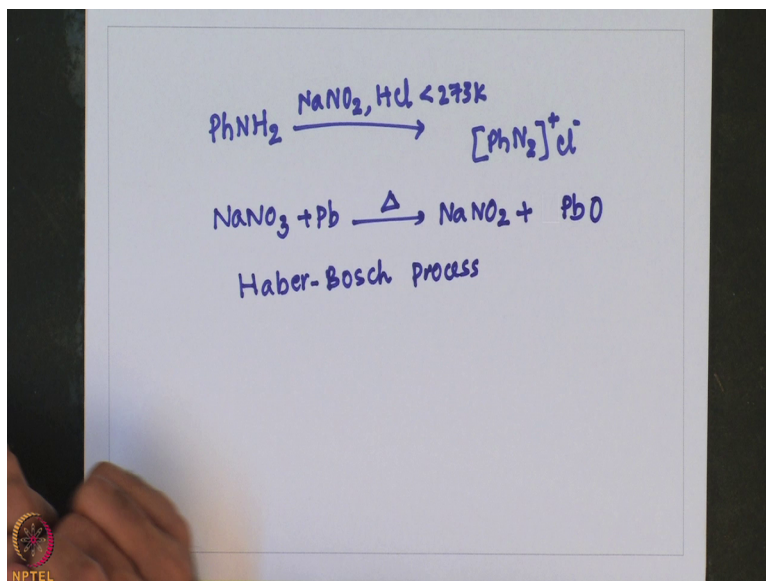 PhNH₂ NaNO₂, HCl <273K → [PhN₂]⁺Cl⁻
NaNO₃ + Pb Δ → NaNO₂ + PbO
Haber-Bosch Process
NPTEL